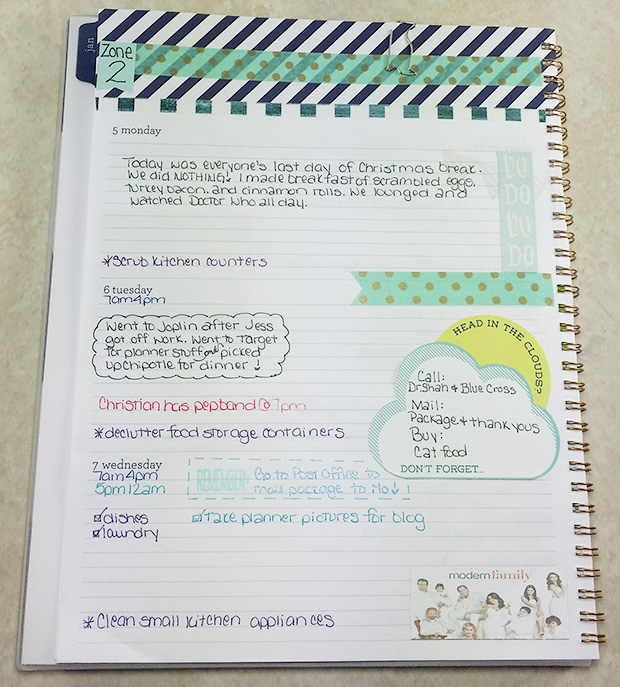 jan
Zone
2
5 monday
Today was everyone's last day of Christmas break.
We did NOTHING! I made breakfast of scrambled eggs,
turkey bacon, and cinnamon rolls. We lounged and
watched Doctor Who all day.
DO
DO
DO
DO
*scrub kitchen counters
6 tuesday
7am4pm
Went to Joplin after Jess
got off work. Went to Target
for planner stuff and picked
up chipotle for dinner!
Christian has pepband @ 7pm
*declutter food storage containers
HEAD IN THE CLOUDS?
Call:
Dr. Shah & Blue Cross
Mail:
Package & thank yous
Buy:
Cat food
DON'T FORGET...
7 wednesday
7am4pm
5pm12am
REMEMBER: Go to Post Office to
mail package to Mo!
dishes
laundry
take planner pictures for blog
modern family
*Clean small kitchen appliances